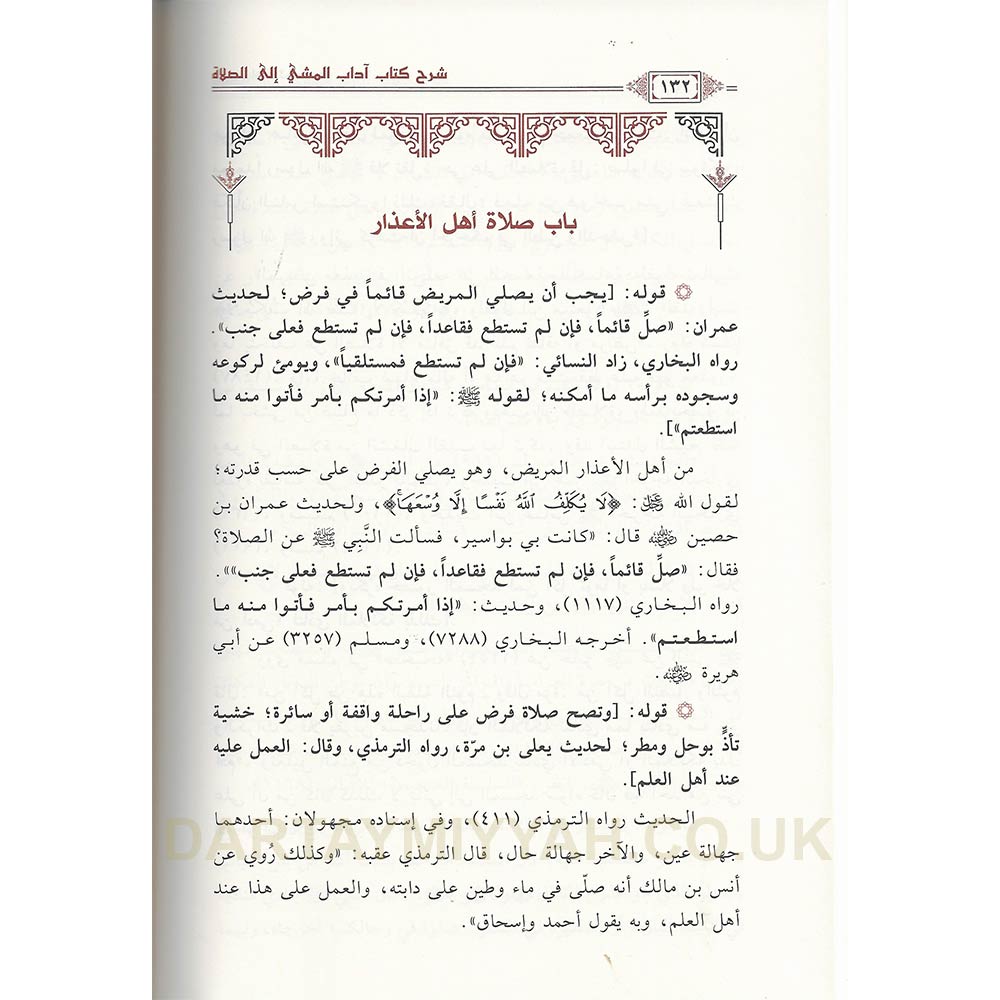 شرح كتاب آداب المشي إلى الصلاة
١٣٢
باب صلاة أهل الأعذار
قوله: [يجب أن يصلي المريض قائماً في فرض؛ لحديث
عمران: «صلِّ قائماً، فإن لم تستطع فقاعداً، فإن لم تستطع فعلى جنب».
رواه البخاري، زاد النسائي: «فإن لم تستطع فمستلقياً»، ويومئ لركوعه
وسجوده برأسه ما أمكنه؛ لقوله ﷺ: «إذا أمرتكم بأمر فأتوا منه ما
استطعتم»].
من أهل الأعذار المريض، وهو يصلي الفرض على حسب قدرته؛
لقول الله عَزَّوَجَلَّ: ﴿لَا يُكَلِّفُ ٱللَّهُ نَفْسًا إِلَّا وُسْعَهَاۚ﴾، ولحديث عمران بن
حصين رَضِيَ اللَّهُ عَنْهُ قال: «كانت بي بواسير، فسألت النَّبي ﷺ عن الصلاة؟
فقال: «صلِّ قائماً، فإن لم تستطع فقاعداً، فإن لم تستطع فعلى جنب»».
رواه البخاري (١١١٧)، وحديث: «إذا أمرتكم بأمر فأتوا منه ما
استطعتم». أخرجه البخاري (٧٢٨٨)، ومسلم (٣٢٥٧) عن أبي
هريرة رَضِيَ اللَّهُ عَنْهُ.
قوله: [وتصح صلاة فرض على راحلة واقفة أو سائرة؛ خشية
تأذٍّ بوحل ومطر؛ لحديث يعلى بن مرّة، رواه الترمذي، وقال: العمل عليه
عند أهل العلم].
الحديث رواه الترمذي (٤١١)، وفي إسناده مجهولان: أحدهما
جهالة عين، والآخر جهالة حال، قال الترمذي عقبه: «وكذلك رُوي عن
أنس بن مالك أنه صلّى في ماء وطين على دابته، والعمل على هذا عند
أهل العلم، وبه يقول أحمد وإسحاق».
DARTAYMIYYAH.CO.UK